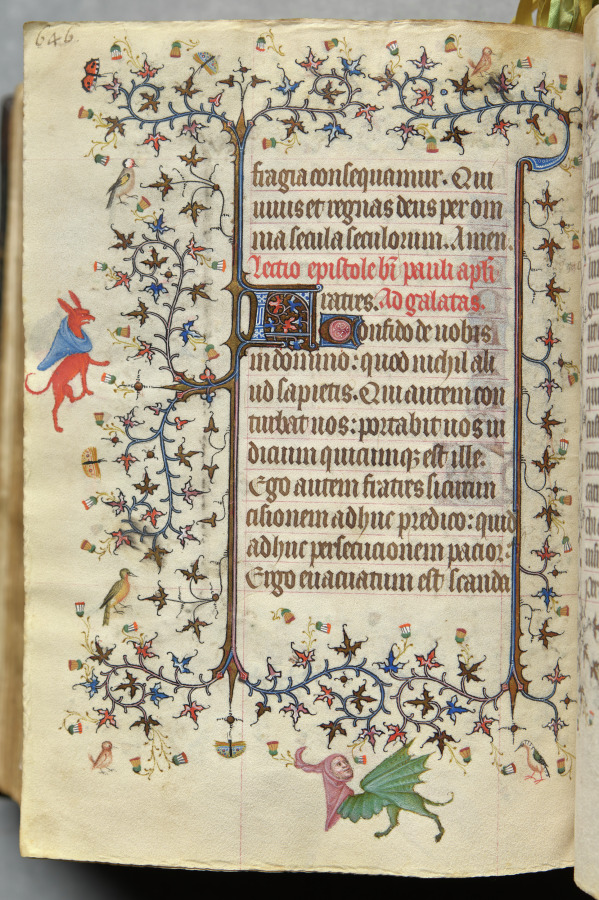 646.
fragia consequamur. Qui
uiuis et regnas deus per om
nia secula seculorum. Amen.
Lectio epistole bi pauli apli
Fratres. Ad galatas.
Confido de uobis
in domino: quod nichil ali
ud sapietis. Qui autem con
turbat uos: portabit uos iu
dicium quicumqz est ille.
Ego autem fratres si circun
cisionem adhuc predico: quid
adhuc persecutionem pacior:
Ergo euacuatum est scanda